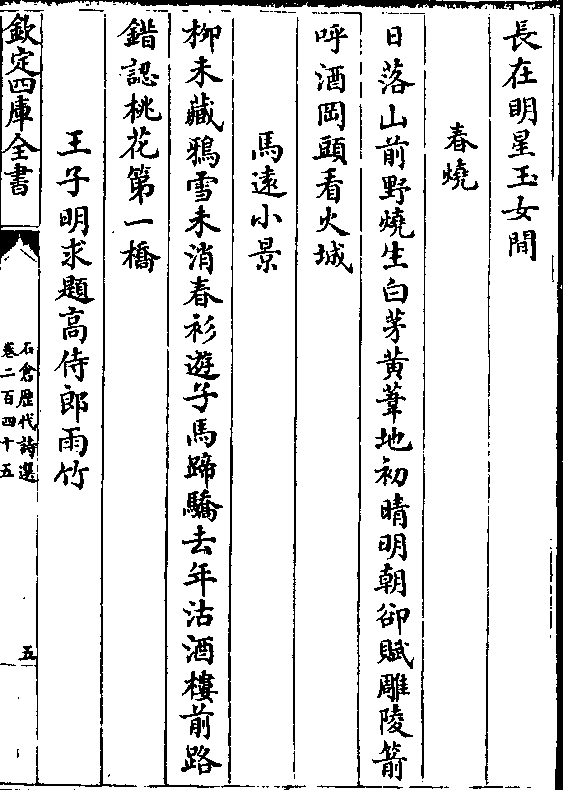 長在明星玉女間
春燒
日落山前野燒生白茅黃葦地初晴明朝卻賦雕陵箭
呼酒岡頭看火城
馬遠小景
柳未藏鴉雪未消春衫遊子馬蹄驕去年沽酒樓前路
錯認桃花第一橋
王子明求題高侍郎雨竹
欽定四庫全書
石倉歷代詩選
卷二百四十五
五